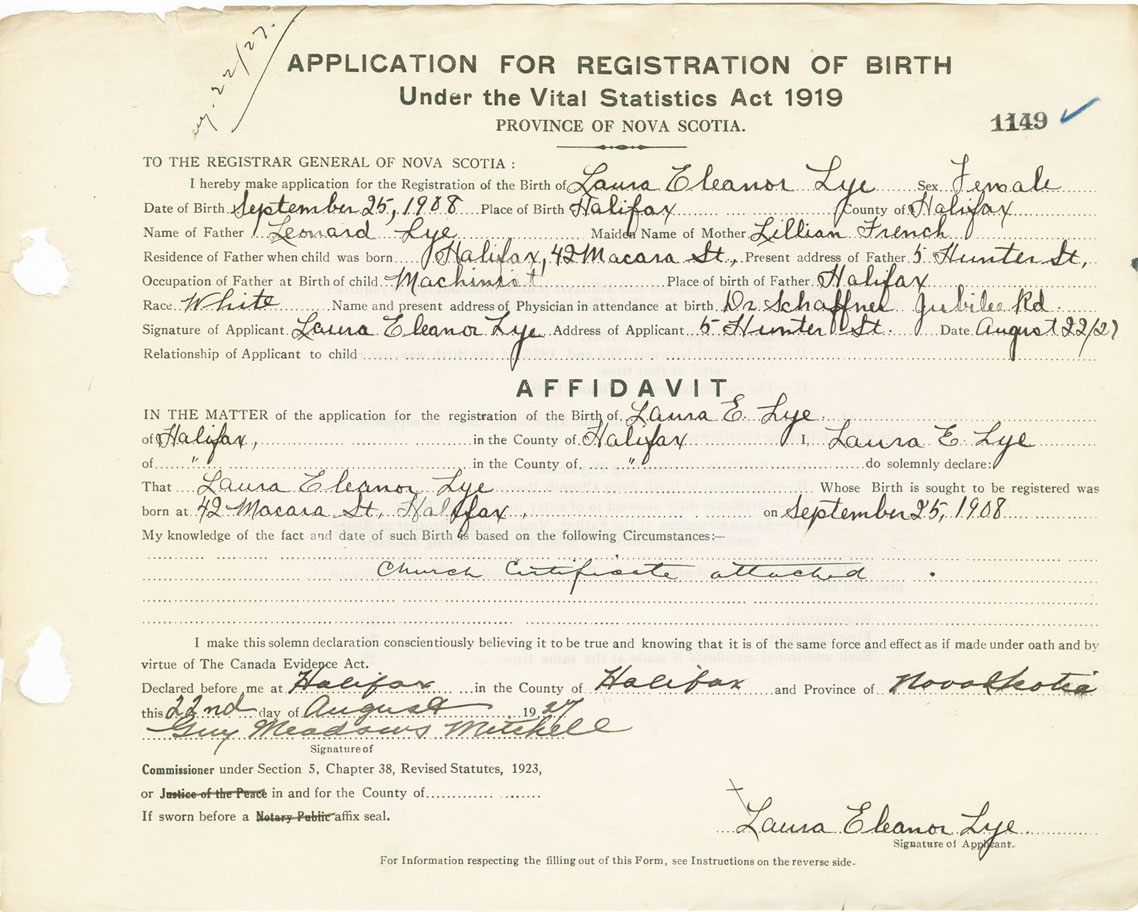 Aug. 22/27.
APPLICATION FOR REGISTRATION OF BIRTH
Under the Vital Statistics Act 1919
PROVINCE OF NOVA SCOTIA.
1149
TO THE REGISTRAR GENERAL OF NOVA SCOTIA :
I hereby make application for the Registration of the Birth of Laura Eleanor Lye Sex Female
Date of Birth September 25, 1908 Place of Birth Halifax County of Halifax
Name of Father Leonard Lye Maiden Name of Mother Lillian French
Residence of Father when child was born Halifax, 42 Macara St., Present address of Father 5 Hunter St,
Occupation of Father at Birth of child Machinist Place of birth of Father Halifax
Race White Name and present address of Physician in attendance at birth Dr Schaffner Jubilee Rd.
Signature of Applicant Laura Eleanor Lye Address of Applicant 5 Hunter St. Date August 22/27
Relationship of Applicant to child
AFFIDAVIT
IN THE MATTER of the application for the registration of the Birth of Laura E. Lye
of Halifax, in the County of Halifax I, Laura E Lye
of " in the County of " do solemnly declare:
That Laura Eleanor Lye Whose Birth is sought to be registered was
born at 42 Macara St, Halifax on September 25, 1908
My knowledge of the fact and date of such Birth is based on the following Circumstances:—
Church Certificate attached .
I make this solemn declaration conscientiously believing it to be true and knowing that it is of the same force and effect as if made under oath and by
virtue of The Canada Evidence Act.
Declared before me at Halifax in the County of Halifax and Province of Nova Scotia
this 22nd day of August 1927
Guy Meadows Mitchell
Signature of
Commissioner under Section 5, Chapter 38, Revised Statutes, 1923,
or Justice of the Peace in and for the County of
If sworn before a Notary Public affix seal.
Laura Eleanor Lye
Signature of Applicant.
For Information respecting the filling out of this Form, see Instructions on the reverse side-